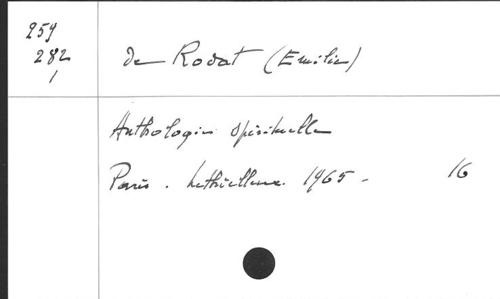 259
282
1
De Rodat (Emilie)
Anthologie spirituelle
Paris. Lethielleux. 1965 - 16